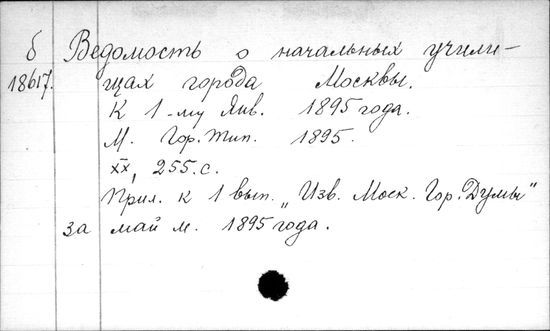 б Ведомость о начальных учили-
18617. щах города Москвы.
К 1-му Янв. 1895 года.
М. Гор. тип. 1895.
XX, 255. с.
Прил. к 1 вып. „Изв. Моск. Гор. Думы"
за май м. 1895 года.